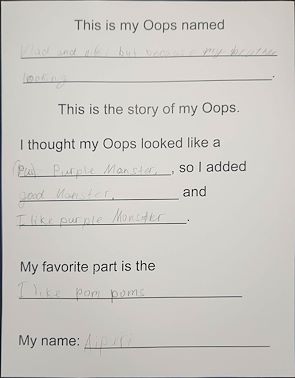 This is my Oops named
and but because my brother
looking .
This is the story of my Oops.
I thought my Oops looked like a
Purple Manster, , so I added
good Manster, and
I like purple Monster .
My favorite part is the
I like pom poms
My name: